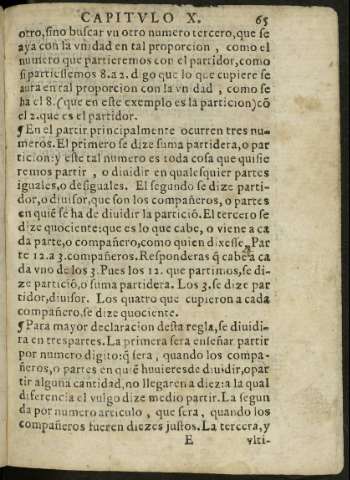 CAPITVLO X. 65
otro, sino buscar vn otro numero tercero, que se
aya con la vnidad en tal proporcion , como el
numero que partieremos con el partidor, como
si partiessemos 8. a 2. digo que lo que cupiere se
aura en tal proporcion con la vnidad , como se
ha el 8. (que en este exemplo es la particion) cõ
el 2. que es el partidor.
¶ En el partir principalmente ocurren tres nu-
meros. El primero se dize suma partidera, o par
ticion: y este tal numero es toda cosa que quisie
remos partir , o diuidir en qualesquier partes
iguales, o desiguales. El segundo se dize parti-
dor, o diuisor, que son los compañeros, o partes
en quiẽ se ha de diuidir la particiõ. El tercero se
dize quociente: que es lo que cabe, o viene a ca
da parte, o compañero, como quien dixesse, Par
te 12. a 3. compañeros. Responderas q̃ cabe a ca
da vno de los 3. Pues los 12. que partimos, se di-
ze particiõ, o suma partidera. Los 3. se dize par
tidor, diuisor. Los quatro que cupieron a cada
compañero, se dize quociente.
¶ Para mayor declaracion desta regla, se diuidi-
ra en tres partes. La primera sera enseñar partir
por numero digito: q̃ sera , quando los compa-
ñeros, o partes en quiẽ huuieres de diuidir, o par
tir alguna cantidad, no llegaren a diez: a la qual
diferencia el vulgo dize medio partir. La segun
da por numero articulo , que sera , quando los
compañeros fueren diezes justos. La tercera, y
E vlti-